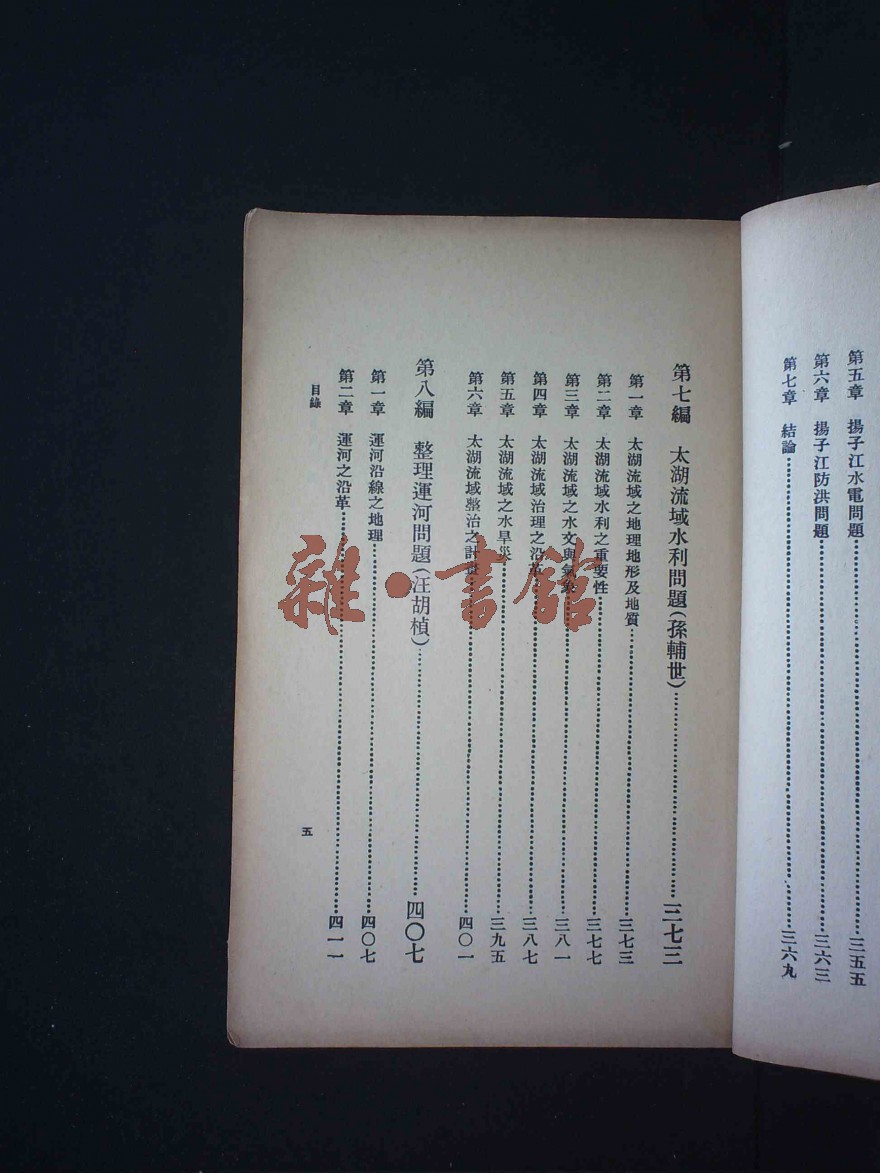 第五章　揚子江水電問題……三五五
第六章　揚子江防洪問題……三六三
第七章　結論……三六九
第七編　太湖流域水利問題(孫輔世)……三七三
第一章　太湖流域之地理地形及地質……三七三
第二章　太湖流域水利之重要性……三七七
第三章　太湖流域之水文與氣象……三八一
第四章　太湖流域治理之沿革……三八七
第五章　太湖流域之水旱災……三九五
第六章　太湖流域整治之計畫……四〇一
第八編　整理運河問題(汪胡楨)……四〇七
第一章　運河沿線之地理……四〇七
第二章　運河之沿革……四一一
目錄
五
雜·書館